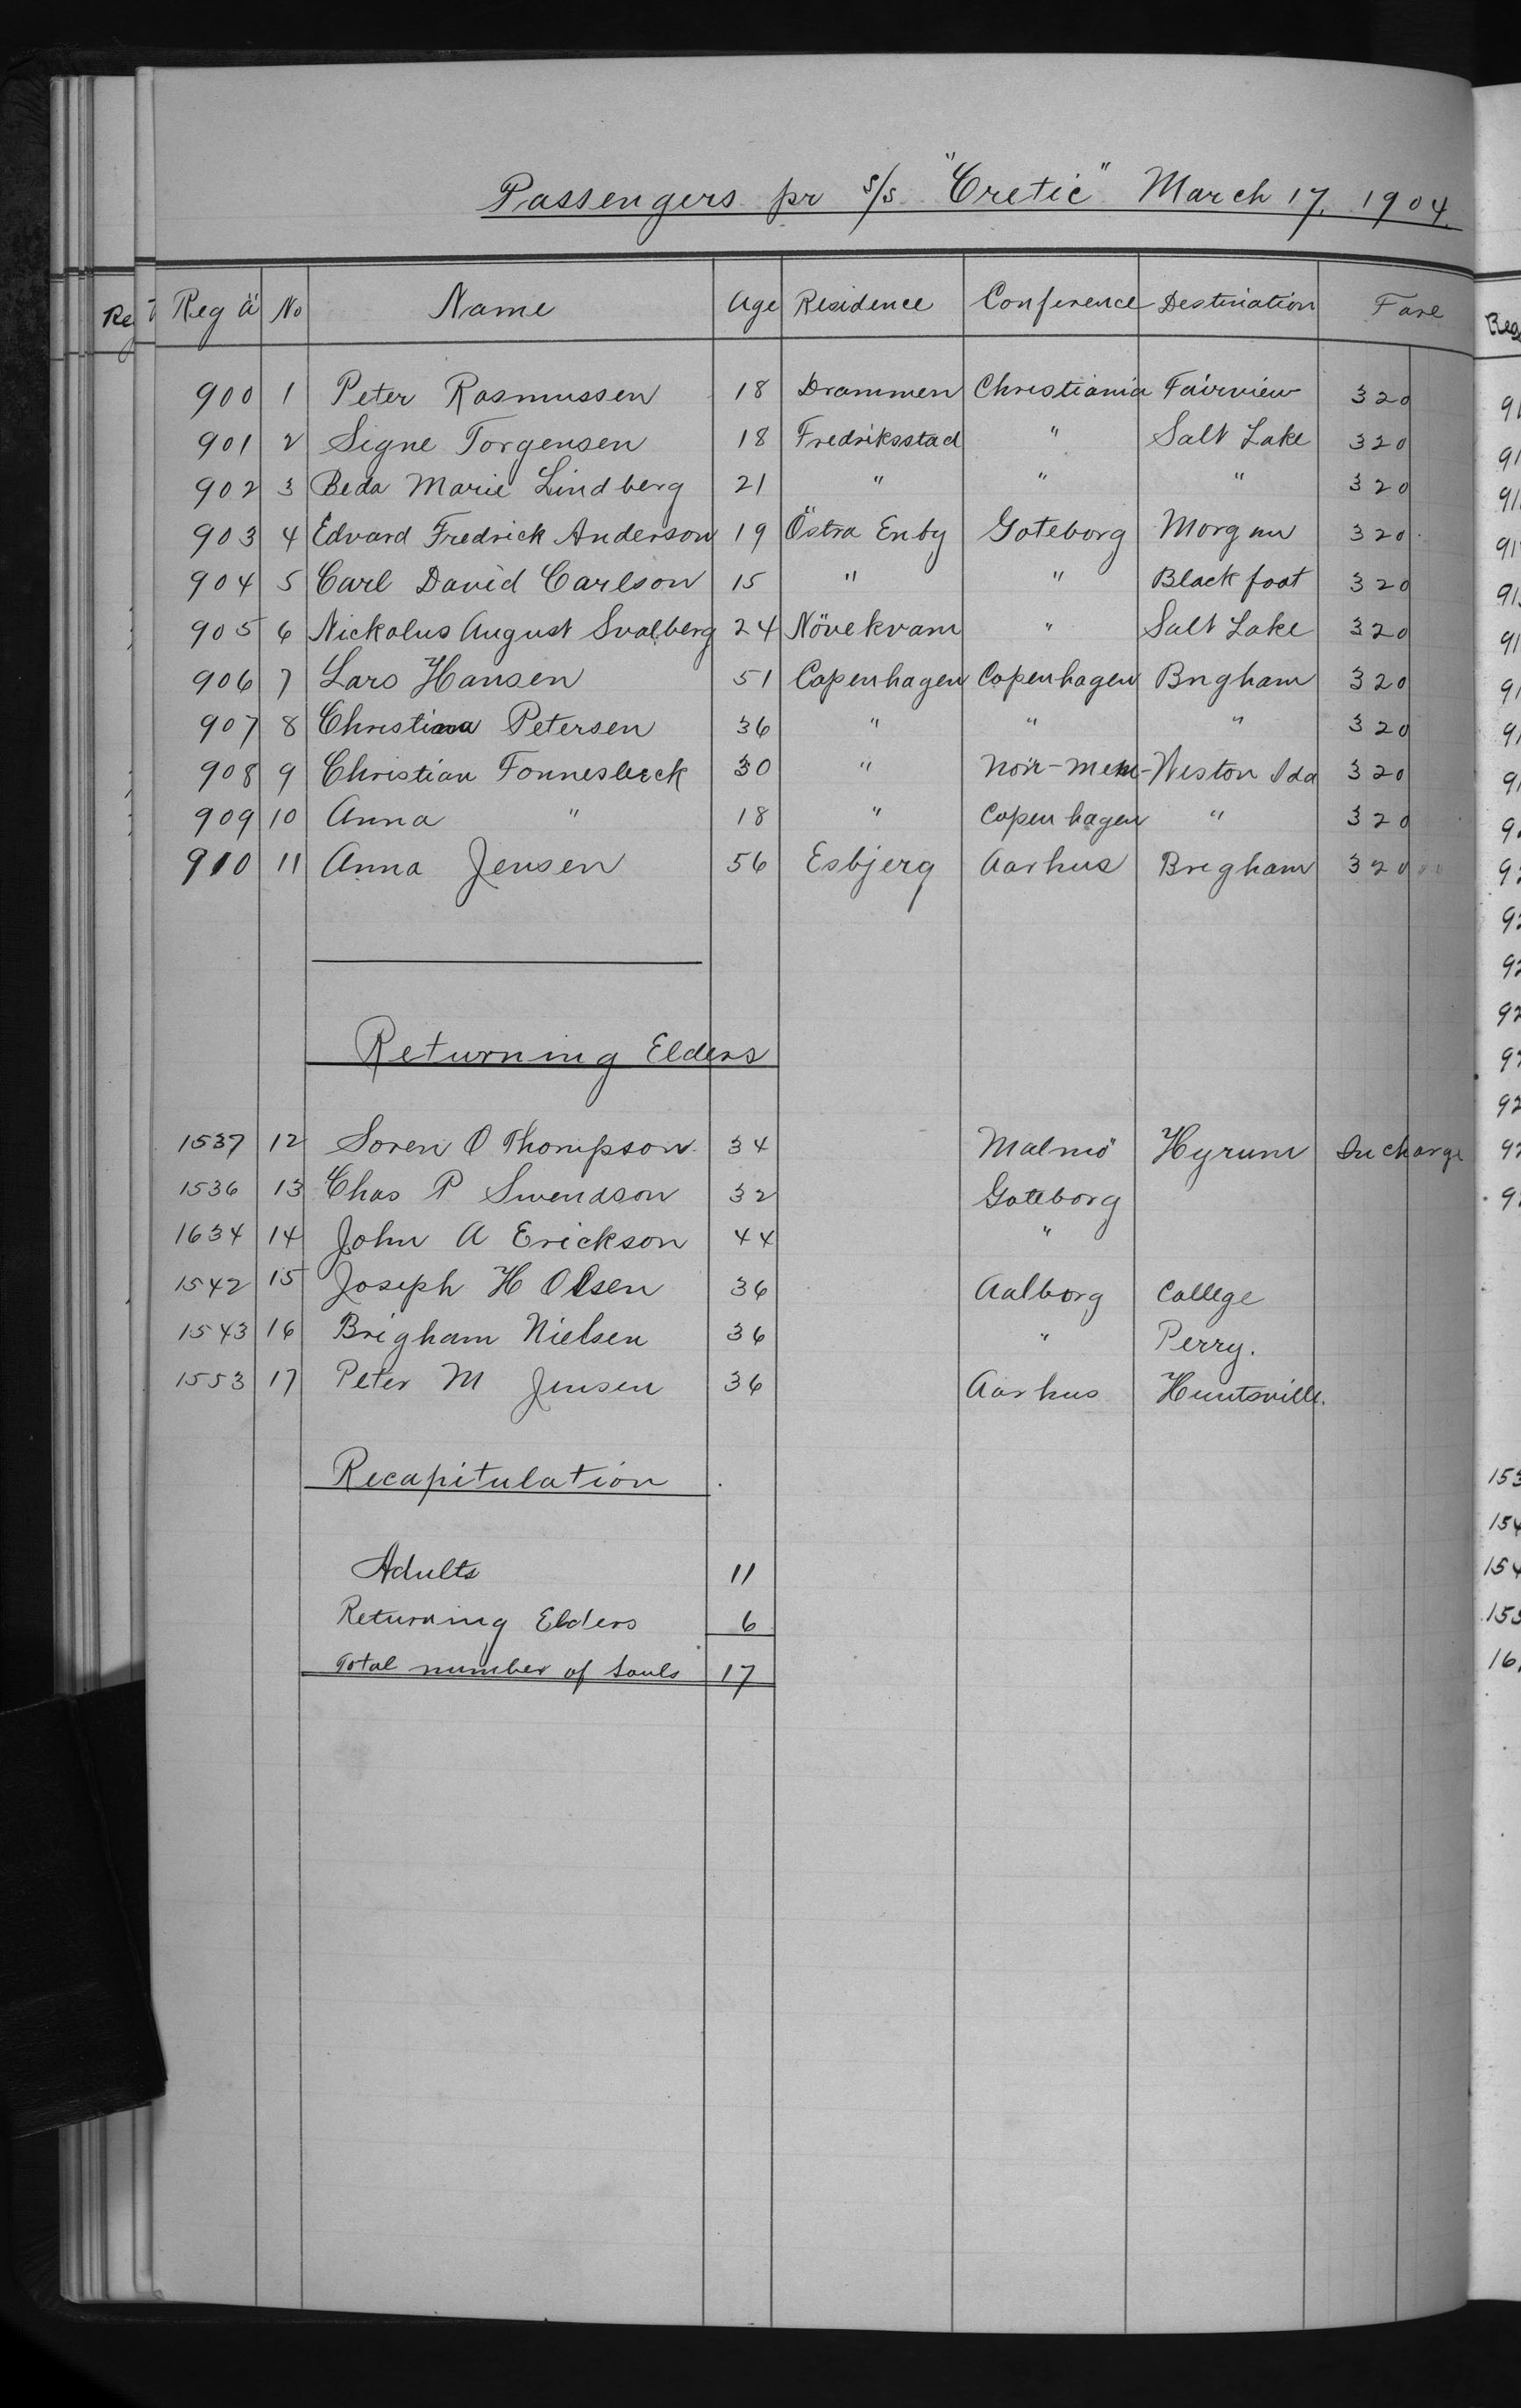 Passengers pr s/s "Cretic" March 17. 1904.
Reg ä No Name Age Residence Conference Destination Fare
900 1 Peter Rasmussen 18 Drammen Christiania Fairview 320
901 2 Signe Torgensen 18 Fredriksstad " Salt Lake 320
902 3 Beda Marie Lindberg 21 " " " 320
903 4 Edvard Fredrick Anderson 19 Östra Enby Goteborg Morgan 320
904 5 Carl David Carlson 15 " " Blackfoot 320
905 6 Nickolus August Svalberg 24 Növekvarn " Salt Lake 320
906 7 Lars Hansen 51 Copenhagen Copenhagen Brigham 320
907 8 Christina Petersen 36 " " " 320
908 9 Christian Fonnesbeck 30 " Non-mem- Weston Ida 320
909 10 Anna " 18 " Copenhagen " 320
910 11 Anna Jensen 56 Esbjerg Aarhus Brigham 320
Returning Elders
1537 12 Soren O Thompson 34 Malmö Hyrum In charge
1536 13 Chas P Swendson 32 Goteborg
1634 14 John A Erickson 44 "
1542 15 Joseph H Olsen 36 Aalborg College
1543 16 Brigham Nielsen 36 " Perry.
1553 17 Peter M Jensen 36 Aarhus Huntsville.
Recapitulation
Adults 11
Returning Elders 6
Total number of Souls 17